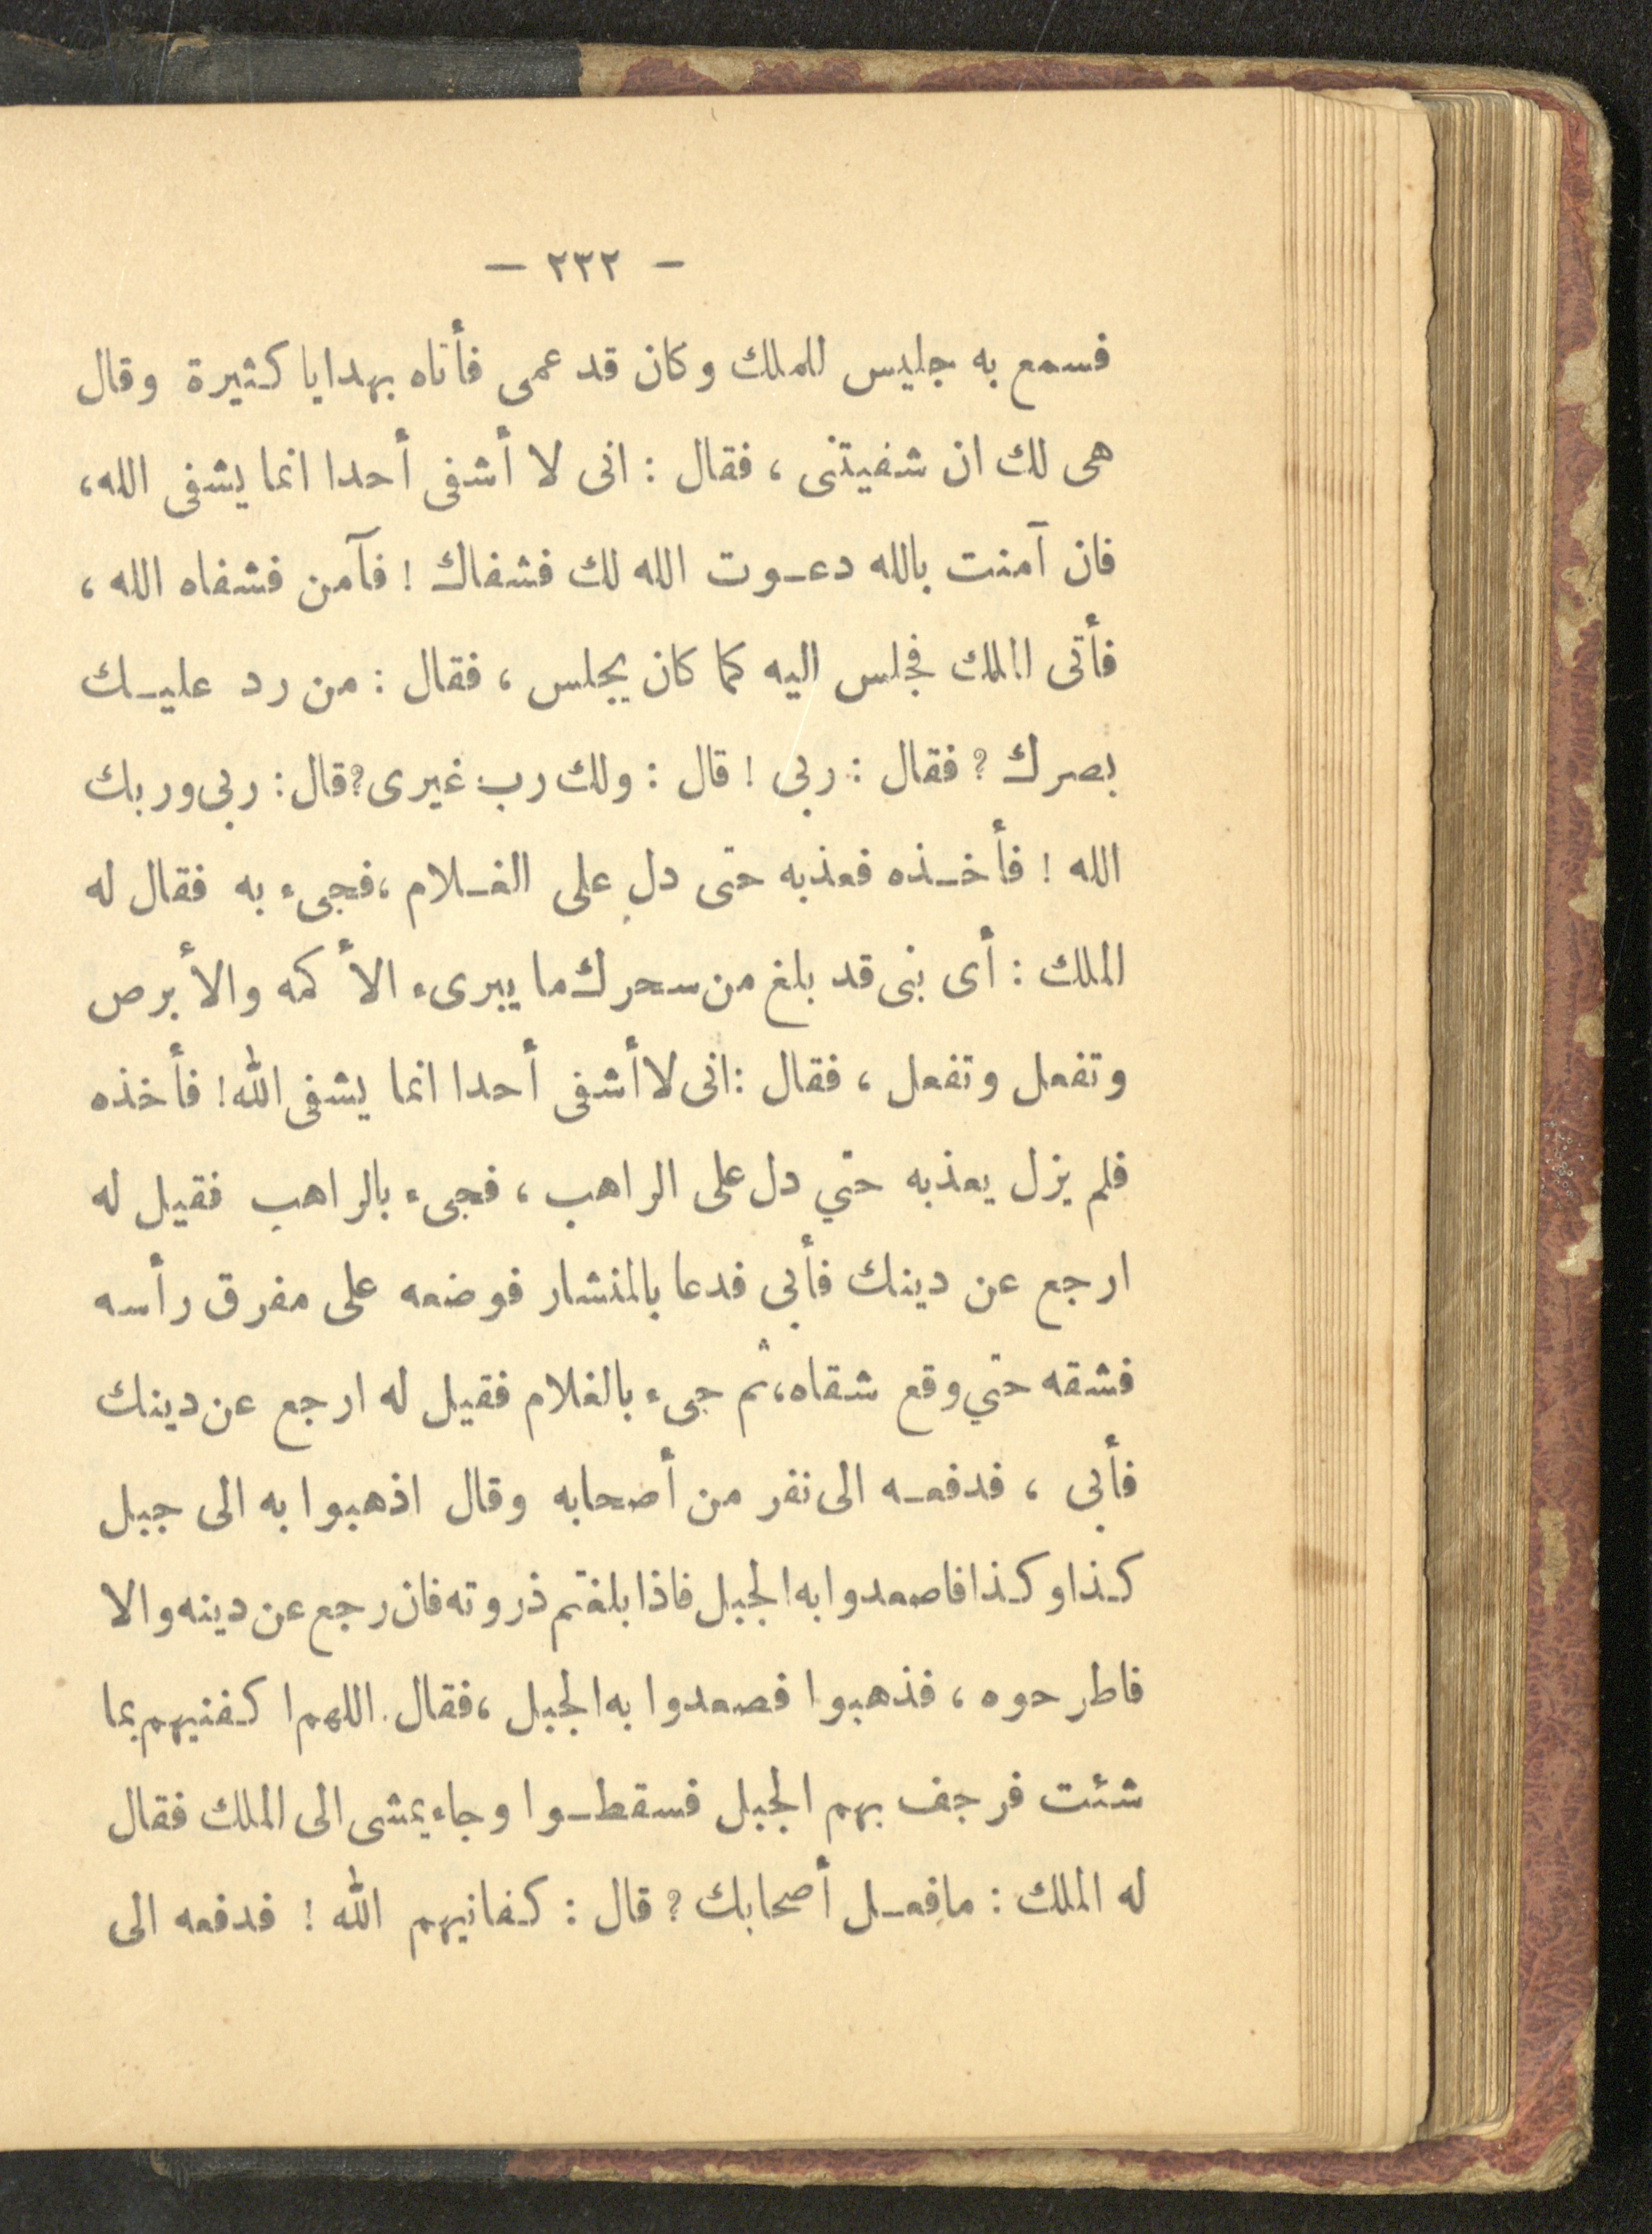 — ٢٣٢ —
فسمع به جليس للملك وكان قد عمى فأتاه بهدايا كثيرة وقال
هى لك ان شفيتنى ، فقال : انى لا أشفى أحدا انما يشفى الله،
فان آمنت بالله دعوت الله لك فشفاك ! فآمن فشفاه الله ،
فأتى الملك فجلس اليه كما كان يجلس ، فقال : من رد عليك
بصرك ؟ فقال : ربى ! قال : ولك رب غيرى؟ قال : ربى وربك
الله ! فأخذه فعذبه حتى دل على الغلام ،فجىء به فقال له
الملك : أى بنى قد بلغ من سحرك ما يبرىء الأكمه والأبرص
وتفعل وتفعل ، فقال :انى لا أشفى أحدا انما يشفى الله! فأخذه
فلم يزل يعذبه حتي دل على الراهب ، فجىء بالراهب فقيل له
ارجع عن دينك فأبى فدعا بالمنشار فوضعه على مفرق رأسه
فشقه حتي وقع شقاه، ثم جىء بالغلام فقيل له ارجع عن دينك
فأبى ، فدفعه الى نفر من أصحابه وقال اذهبوا به الى جبل
كذا وكذا فاصعدوا به الجبل فاذا بلغتم ذروته فان رجع عن دينه والا
فاطرحوه ، فذهبوا فصعدوا به الجبل ،فقال. اللهم اكفنيهم بما
شئت فرجف بهم الجبل فسقطوا وجاء يمشى الى الملك فقال
له الملك : ما فعل أصحابك ؟ قال : كفانيهم الله ! فدفعه الى